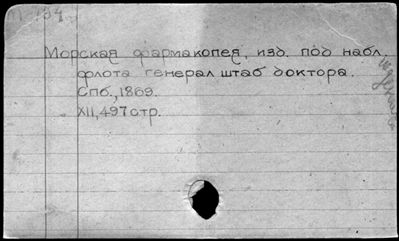 Морская фармакопея, изд. под набл.
флота генерал штаб доктора.
Спб., 1869.
XII, 497 стр.